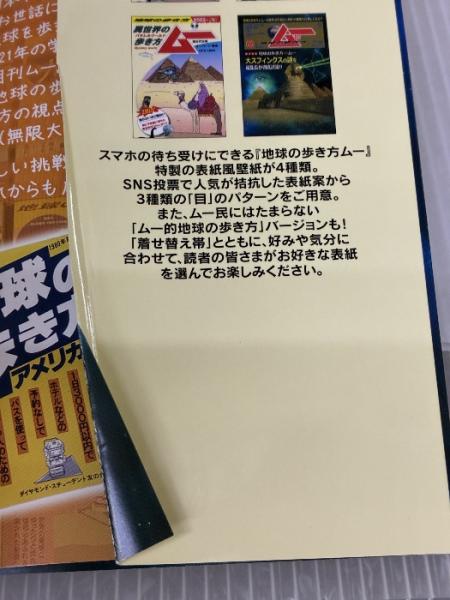 お世話に
球を歩
21年の学
月刊ムー
地球の歩
方の視点
(無限大
しい挑戦
からも
地球の歩き方
異世界の
歩き方
ムー
ムー
大スフィンクスの謎
スマホの待ち受けにできる『地球の歩き方ムー』
特製の表紙風壁紙が4種類。
SNS投票で人気が拮抗した表紙案から
3種類の「目」のパターンをご用意。
また、ムー民にはたまらない
「ムー的地球の歩き方」バージョンも!
「着せ替え帯」とともに、好みや気分に
合わせて、読者の皆さまがお好きな表紙
を選んでお楽しみください。
球の
歩き方
アメリカ
1日3000円以内で
ホテルなどの
予約なしで
バスを使って
人のための
ダイヤモンド・スチューデント友の